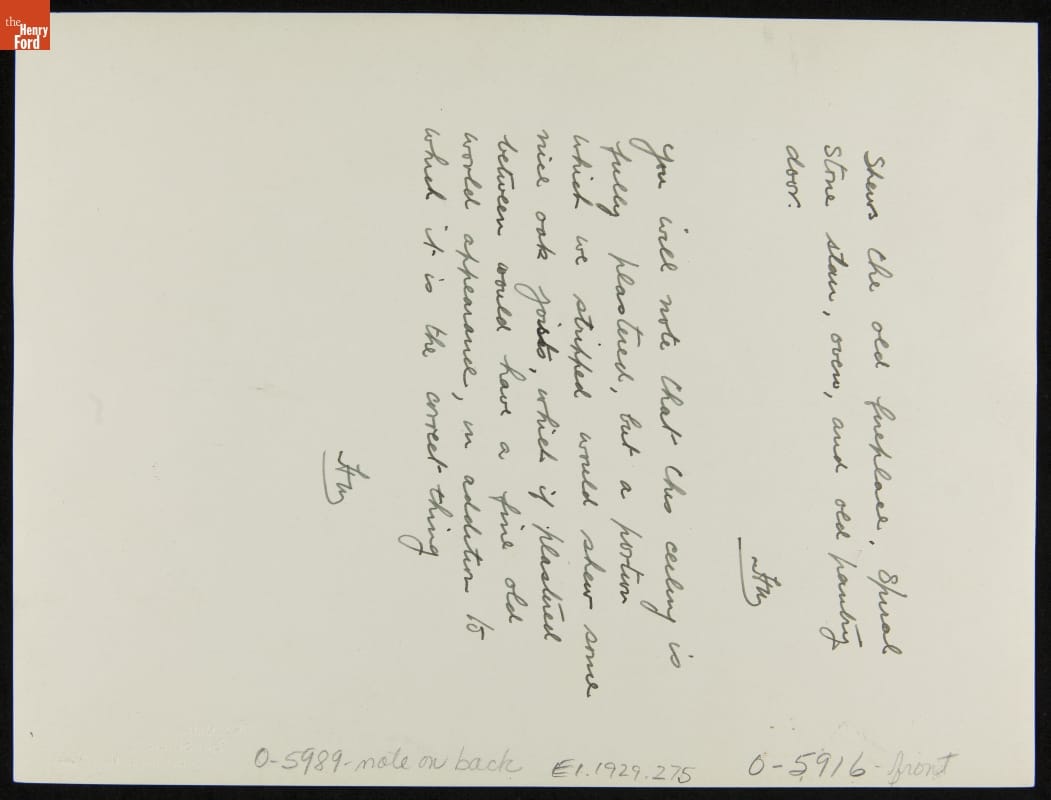 the
Henry
Ford
Shews the old fireplace. Spiral
Stone stair, oven, and old pantry
door.
You will note that this ceiling is
fully plastered, but a portion
which we stripped would shew some
nice oak joists, which if plastered
between would have a fine old
world appearance, in addition to
which it is the correct thing
O-5989-note on back
E1.1929.275
O-5916-front